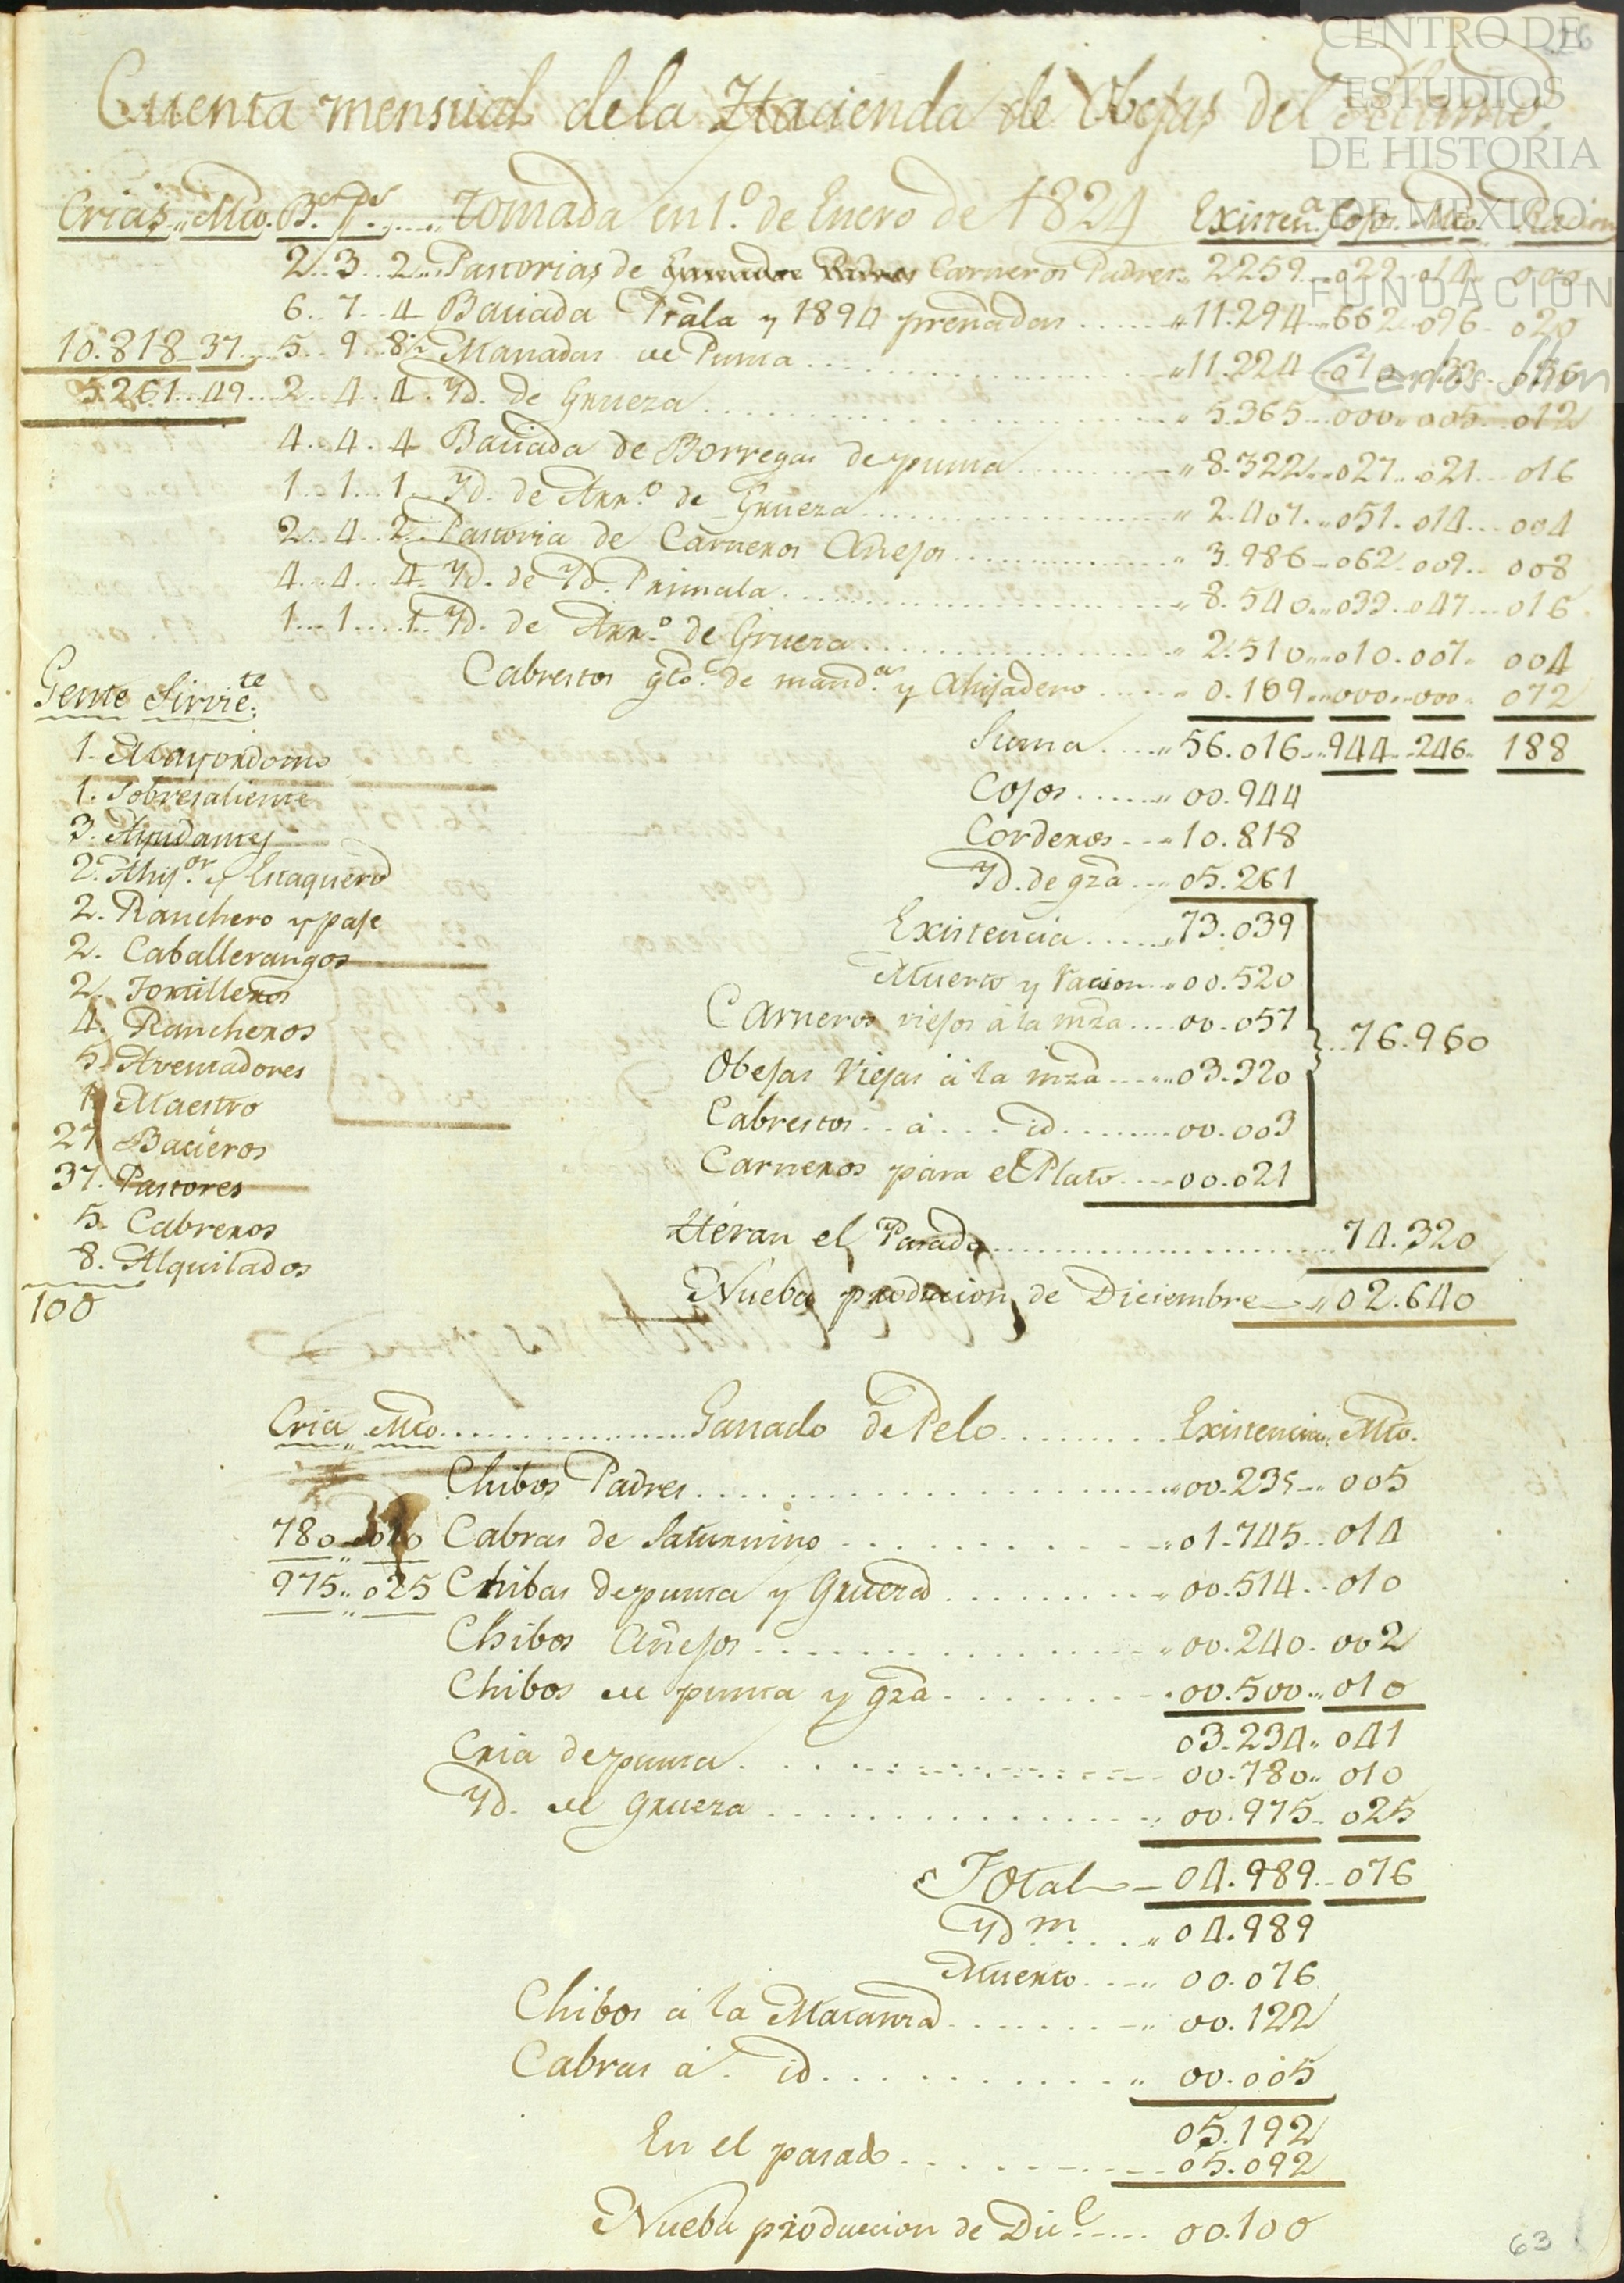 26
CENTRO DE
ESTUDIOS
DE HISTORIA
DE MEXICO
FUNDACION
Carlos Slim
Cuenta mensual dela Hacienda de Obejas del
Crias,, Mto. B.s P.s ..... tomada en 1.º de Enero de 1824 Existen.a Cojo. Mto. Racion
2..3..2... Pastorias de Carneros Padres.. 2259...022..014.. 000
6..7..4 Baciada Prãla y 1894 preñadas ...... 11.294..662..096.. 020
10.818..37... 5..9..8 Manadas de Punta ............ 11.224
5.261...49... 2..4..4. Yd. de Grueza ............ 5.365...000..005...012
4..4..4 Baciada de Borregas de punta ........ 8.322...027..021...016
1..1...1 Yd. de Arr.º de Grueza ........... 2.407...051.014...004
2..4..2. Pastoria de Carneros Añejos ........... 3.986...062..009.. 008
4...4...4. Yd. de Yd. Primala ............ 8.540...039..047...016
1...1....1 Yd. de Arr.º de Grueza ............ 2.510...010.007.. 004
Cabrestos gto.s de mand.as y Ahijadero ..... 0.169...000...000.. 072
Suma ..... 56.016...944...246.. 188
Cojos ...... 00.944
Corderos ... 10.818
Yd. de gza ... 05.261
Existencia ...... 73.039
Muerto y racion .. 00.520
Carneros viejos á la mza .... 00.057
76.960
Obejas Viejas á la mza ...... 03.320
Cabrestos .. á .... id ........ 00.003
Carneros para el Plato ..... 00.021
Héran el Pasado ........................ 74.320
Nueba producion de Diciembre .. 02.640
Gente Sirvie.te
1. Mayordomo
1. Sobresaliente
3. Ayudantes
2. Ahij.or y Enaquero
2. Ranchero y paje
2. Caballerangos
2. Tortilleros
4. Rancheros
5. Aventadores
1. Maestro
27 Bacieros
37. Pastores
5. Cabreros
8. Alquilados
100
Cria ,, Mto. .................. Ganado de Pelo ......... Existencia,, Mto.
Chibos Padres ........................ 00.235... 005
780...010 Cabras de Saturnino ............. 01.745...014
975..025 Chibas de punta y Grueza ......... 00.514...010
Chibos Añejos ................. 00.240. 002
Chibos de punta y gza ......... 00.500...010
03.234.. 041
Cria de punta ................. 00.780.. 010
Yd. de grueza ................. 00.975.. 025
Total .. 04.989...076
Yd m. .. 04.989
Muerto .... 00.076
Chibos á la Matanza ......... 00.122
Cabras á. id ............ 00.005
05.192
En el pasado ......... 05.092
Nueba produccion de Dic.e ..... 00.100
63